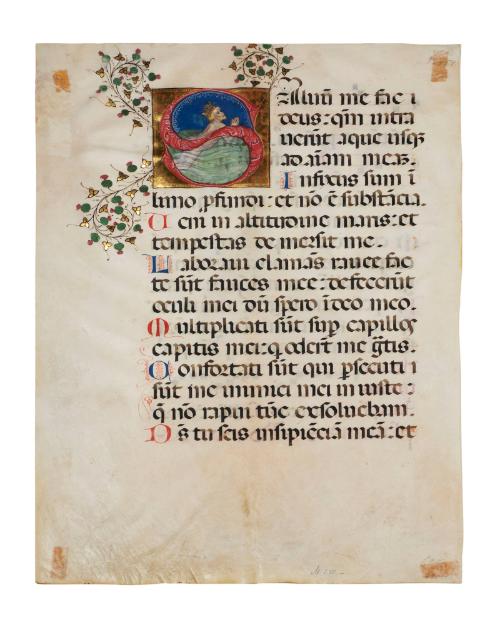 Saluũ me fac
deus: qm̃ intra
uerũt aque usqꝫ
ad aĩam meaꝫ.
Infixus sum ĩ
limo ꝓfundi: et nõ ẽ substãcia.
Ueni in altitudinẽ maris: et
tempestas de mersit me.
Laboraui clamãs rauce fac
te sũt fauces mee: defecerũt
oculi mei dũ spero ĩ deo meo.
Multiplicati sũt suꝑ capillos
capitis mei: q̃ oderũt me gr̃tis.
Confortati sũt qui ꝑsecuti
sũt me inimici mei iniuste:
q̃ nõ rapui tũc exsoluebam.
Ds̃ tu scis insipiẽciã meã: et